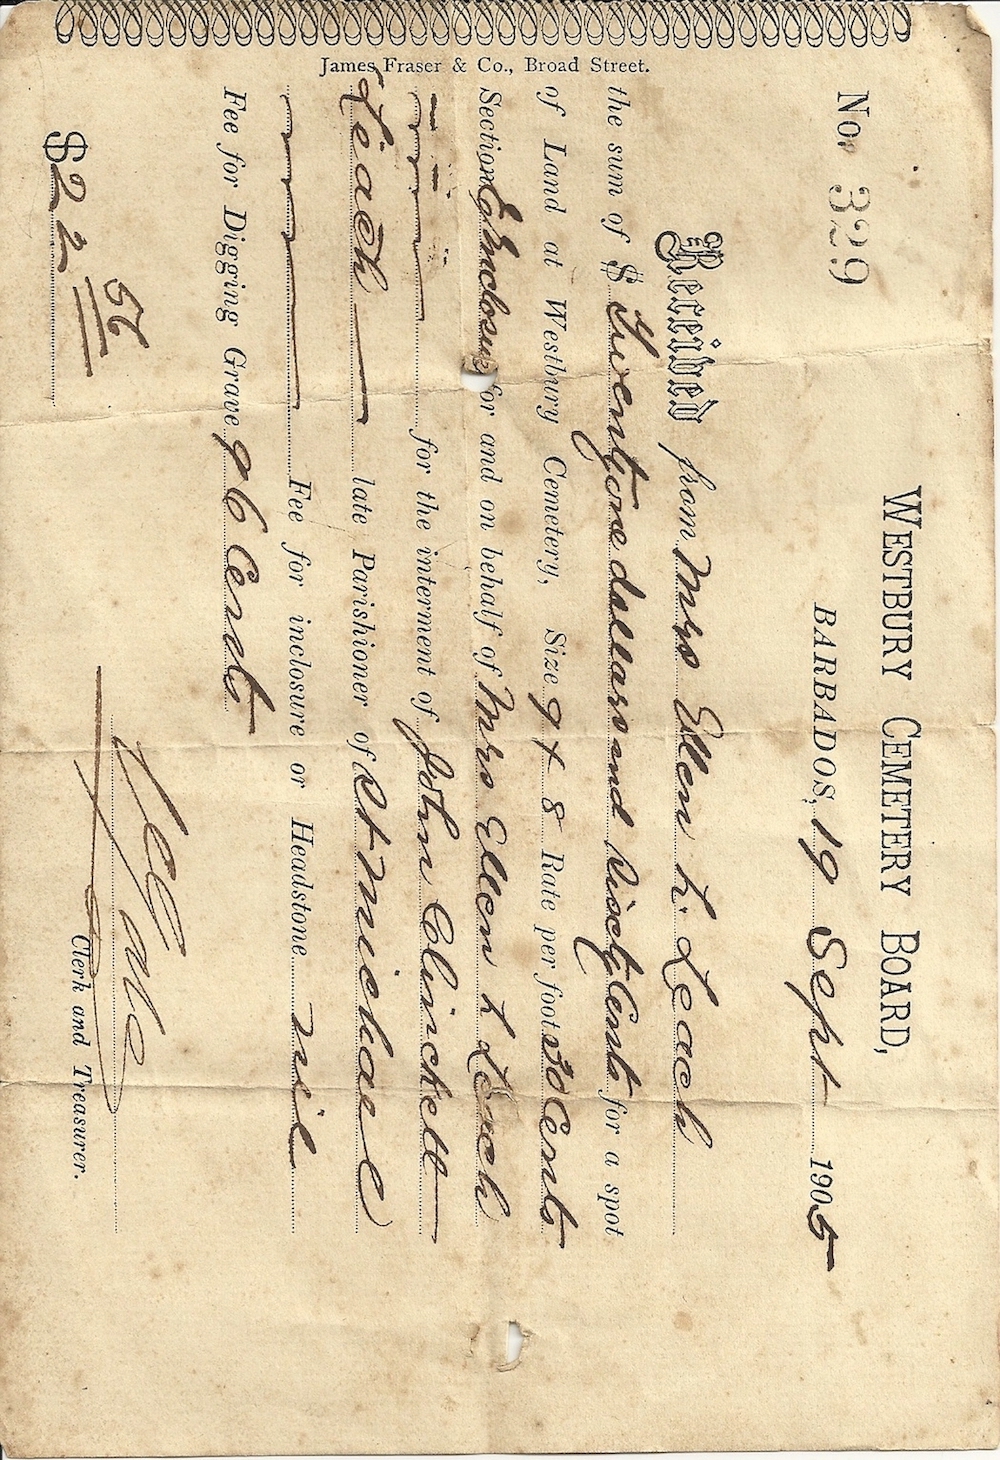 James Fraser & Co., Broad Street.
WESTBURY CEMETERY BOARD,
No. 329 BARBADOS, 19 Sept 1905
Received from Mrs Ellen L. Leach
the sum of $ Twentyone dollars and Sixty Cents for a spot
of Land at Westbury Cemetery, Size 9 x 8 Rate per foot 30 Cents
Section Inclosure for and on behalf of Mrs Ellen L Leach
for the interment of John Clinckett
Leach late Parishioner of St Michael
Fee for inclosure or Headstone nil
Fee for Digging Grave 96 Cents
$22 56
Clerk and Treasurer.